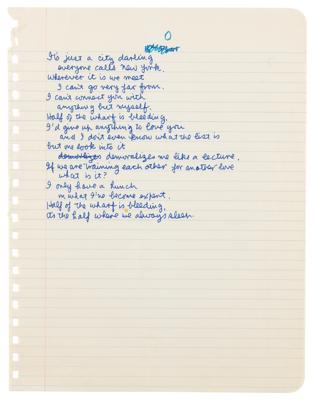 0
It's just a city darling
everyone calls New York.
Wherever it is we meet
I can't go very far from.
I can't connect you with
anything but myself.
Half of the wharf is bleeding.
I'd give up anything to love you
and I don't even know what the list is
but one look into it
demoralizes demoralizes me like a lecture.
If we are training each other for another love
what is it?
I only have a hunch
in what I've become expert.
Half of the wharf is bleeding,
its the half where we always sleep